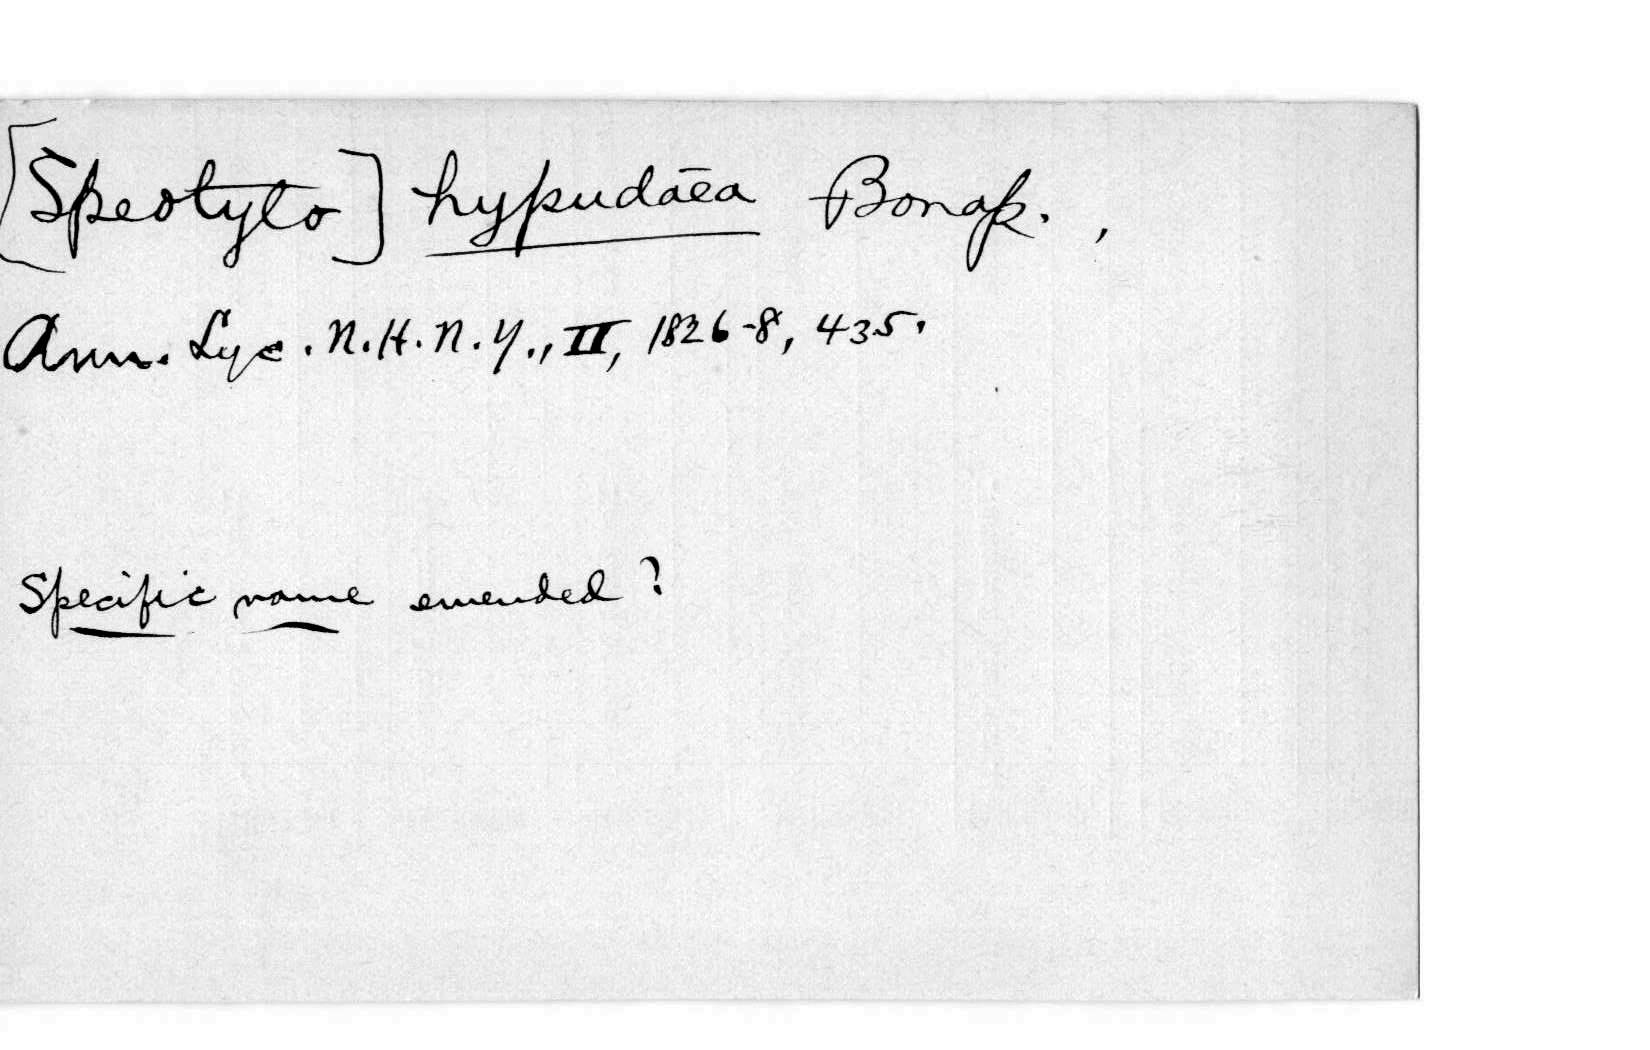 [Speotyto] hypudāea Bonap. ,
Ann. Lyc. N.H. N.Y., II, 1826-8, 435.
Specific name emended?